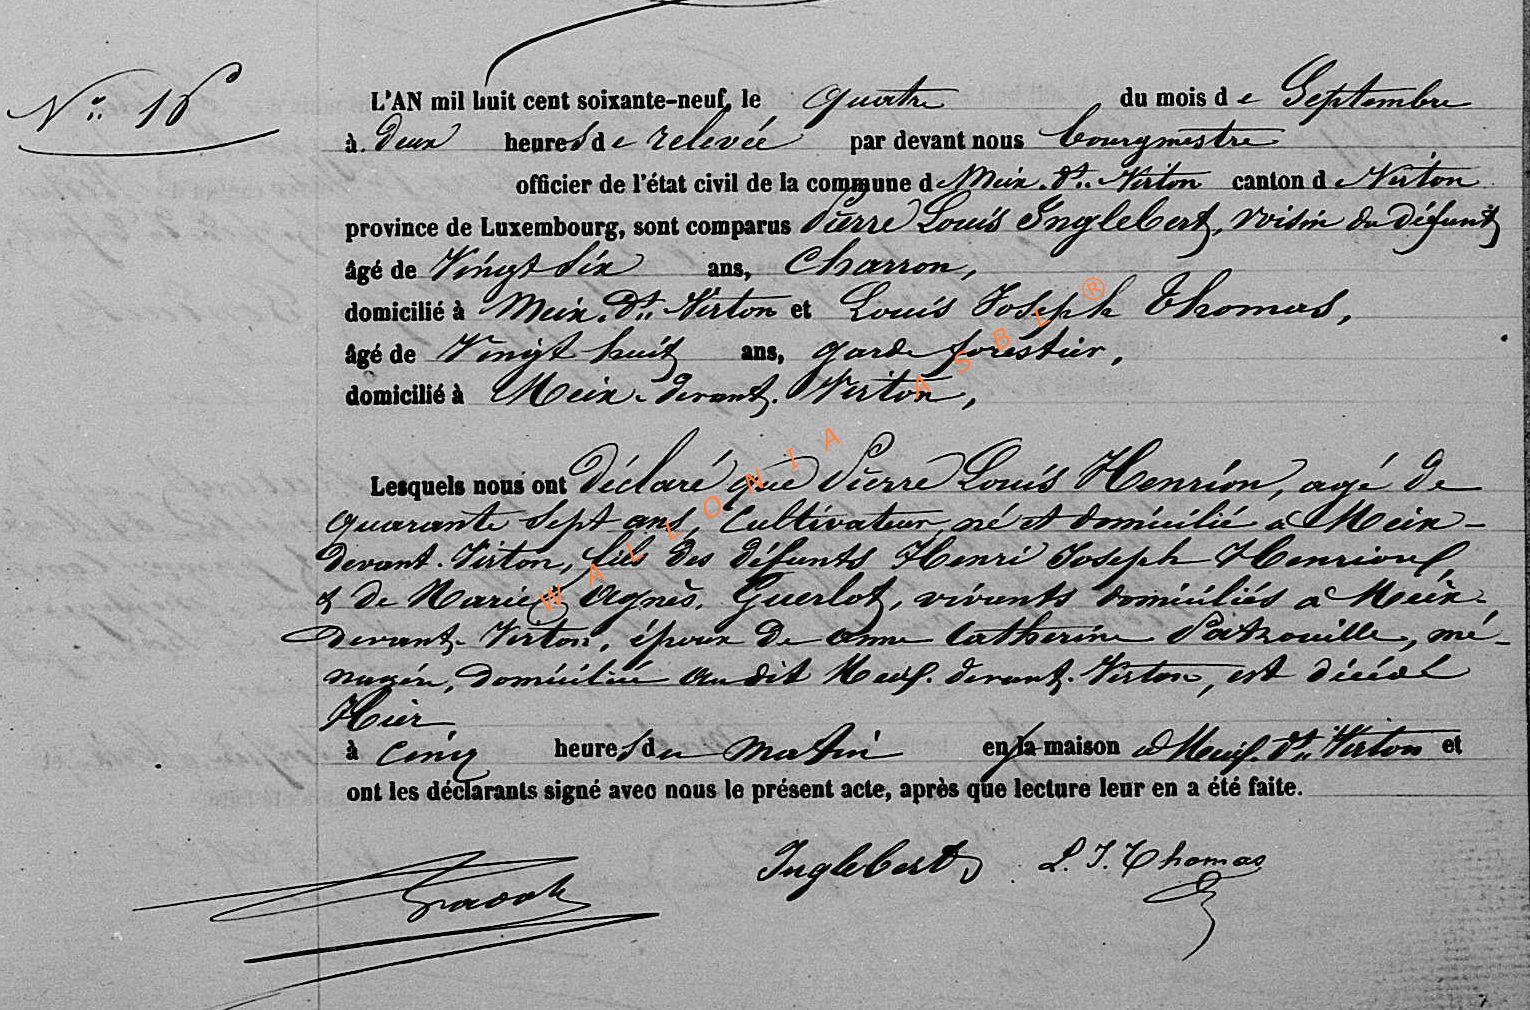 N° 16
L'AN mil huit cent soixante-neuf, le quatre du mois de Septembre
à Deux heures de relevée par devant nous bourgmestre
officier de l'état civil de la commune de Meix-dt-Virton canton de Virton
province de Luxembourg, sont comparus Pierre Louis Inglebert, voisin du défunt
âgé de Vingt six ans, Charron,
domicilié à Meix-dt-Virton et Louis Joseph Thomas,
âgé de Vingt huit ans, garde forestier,
domicilié à Meix-devant-Virton,
Lesquels nous ont déclaré que Pierre Louis Henrion, agé de
quarante sept ans, Cultivateur, né et domicilié à Meix-
devant-Virton, fils des défunts Henri Joseph Henrion,
& de Marie Agnès Guerlot, vivants domiciliés à Meix-
devant-Virton, époux de anne Catherine Patrouille, mé-
nagère, domiciliée audit Meix-devant-Virton, est décédé
Hier
à cinq heures du matin en sa maison à Meix-dt-Virton et
ont les déclarants signé avec nous le présent acte, après que lecture leur en a été faite.
Inglebert L. J. Thomas
WALLONIA ASBL ®